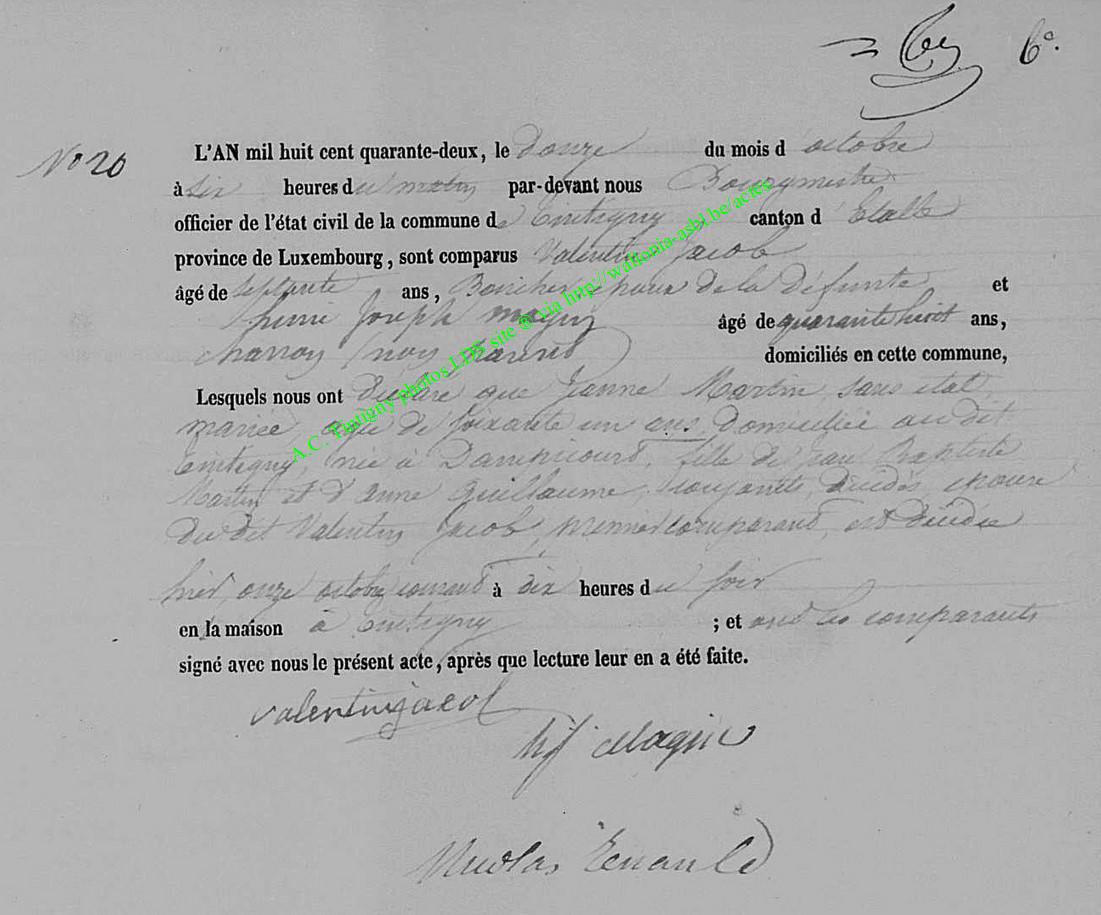 6e.
No 20
L'AN mil huit cent quarante-deux, le Douze du mois d octobre
à six heures du matin par-devant nous Bourgmestre
officier de l'état civil de la commune de Tintigny canton d Etalle
province de Luxembourg, sont comparus Valentin Jacob
âgé de septante ans, époux de la Défunte et
pierre Joseph magin âgé de quarante huit ans,
charron non parent domiciliés en cette commune,
Lesquels nous ont Déclaré que Jeanne Martin sans état
mariée, agée de soixante un ans Domiciliée au dit
Tintigny, née à Dampicourt, fille de jean Baptiste
Martin et d'anne Guillaume conjoints, décédés, épouse
du dit Valentin Jacob, premier comparant, est décédée
hier onze octobre courant à dix heures du soir
en la maison à Tintigny ; et ont les comparants
signé avec nous le présent acte, après que lecture leur en a été faite.
valentin jacob
magin
Nicolas
A.C. Tintigny photos LDS site @ via http://wallonia-asbl.be/actes